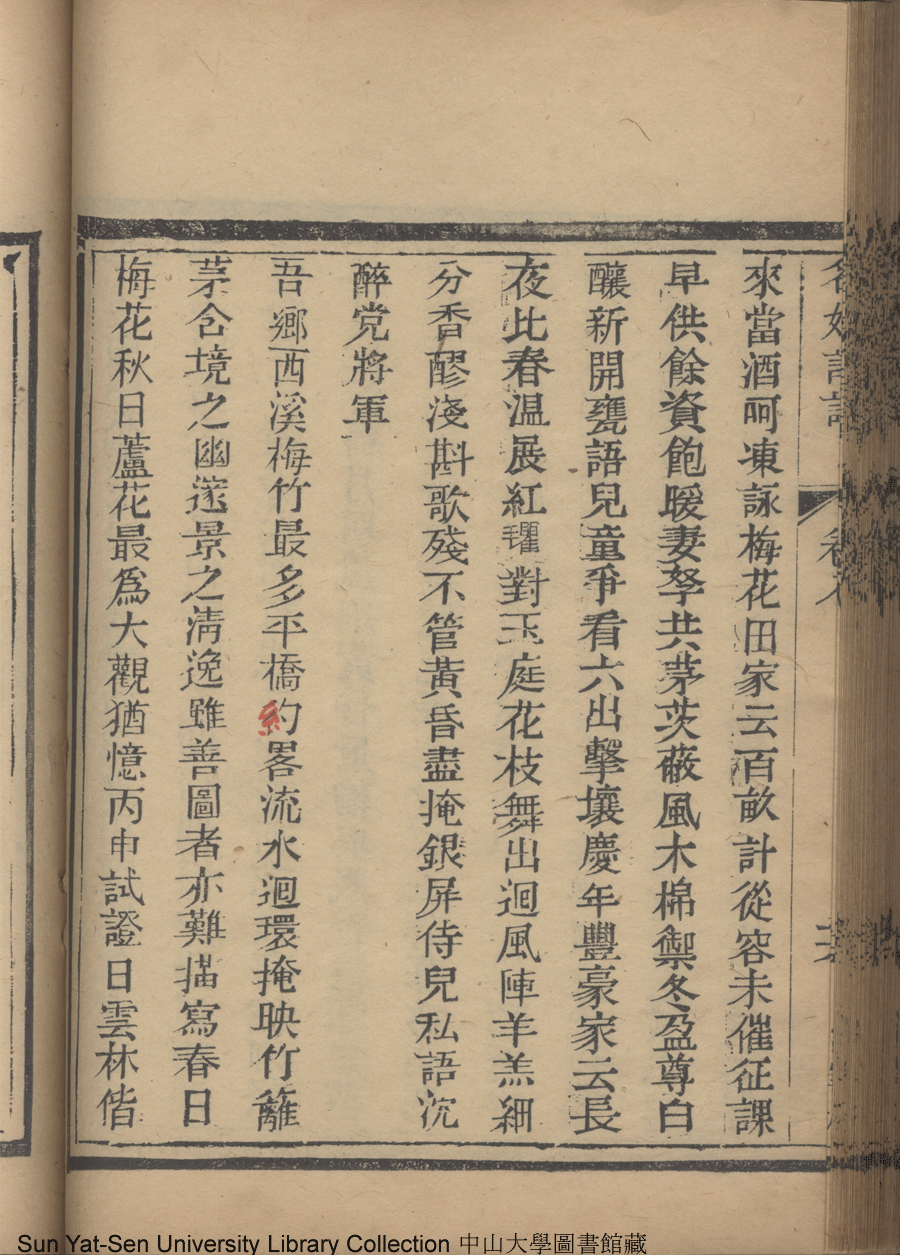 來當酒呵凍詠梅花田家云百畝計從容未催征課
早供餘資飽暖妻孥共茅茨蔽風木棉禦冬盈尊白
釀新開甕語兒童爭看六出擊壤慶年豐豪家云長
夜比春温展紅氍對玉庭花枝舞出迴風陣羊羔細
分香醪淺斟歌殘不管黃昏盡掩銀屏侍兒私語沉
醉党將軍
吾鄉西溪梅竹最多平橋約畧流水迴環掩映竹籬
茅舍境之幽邃景之清逸雖善圖者亦難描寫春日
梅花秋日蘆花最爲大觀猶憶丙申試證日雲林偕
Sun Yat-Sen University Library Collection 中山大學圖書館藏